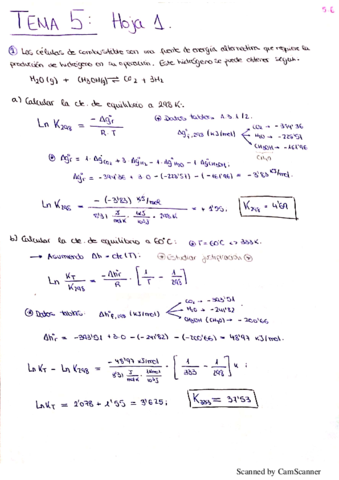 5.6
TEMA 5: Hoja 1.
① Las células de combustible son una fuente de energía alternativa que requiere la
producción de hidrógeno en su operación. Este hidrógeno se puede obtener según:
H₂O(g) + CH₃OH(g) ⇌ CO₂ + 3H₂
a) Calcular la cte. de equilibrio a 298K:
Ln K₂₉₈ = -Δgr° / R·T
⊛ Datos tablas
Δgf°,298 (kJ/mol)
CO₂ → -394'36
H₂O → -228'57
CH₃OH → -161'96
⊛ Δgr° = 1·Δg°CO₂ + 3·Δg°H₂ - 1·Δg°H₂O - 1·Δg°CH₃OH
Δgr° = -394'36 + 3·0 - (-228'57) - (-161'96) = -3'83 kJ/mol
Ln K₂₉₈ = -(-3'83) kJ/mol / 8'31 · 298K = + 1'55.
K₂₉₈ = 4'69
b) Calcular la cte. de equilibrio a 60°C: ⊛ T = 60°C <> 333K.
→ Asumiendo Δh = cte(T).
Ln KT/K₂₉₈ = -Δhr°/R · [1/T - 1/298]
⊛ Datos tablas: Δhf°,298 (kJ/mol)
CO₂ → -393'51
H₂O → -241'82
CH₃OH → -200'66
Δhr° = -393'51 + 3·0 - (-241'82) - (-200'66) = 48'97 kJ/mol.
Ln KT - Ln K₂₉₈ = -48'97 kJ/mol / 8'31 · [1/333 - 1/298] K;
Ln KT = 2'078 + 1'55 = 3'625;
K₃₃₃ = 37'53
Scanned by CamScanner